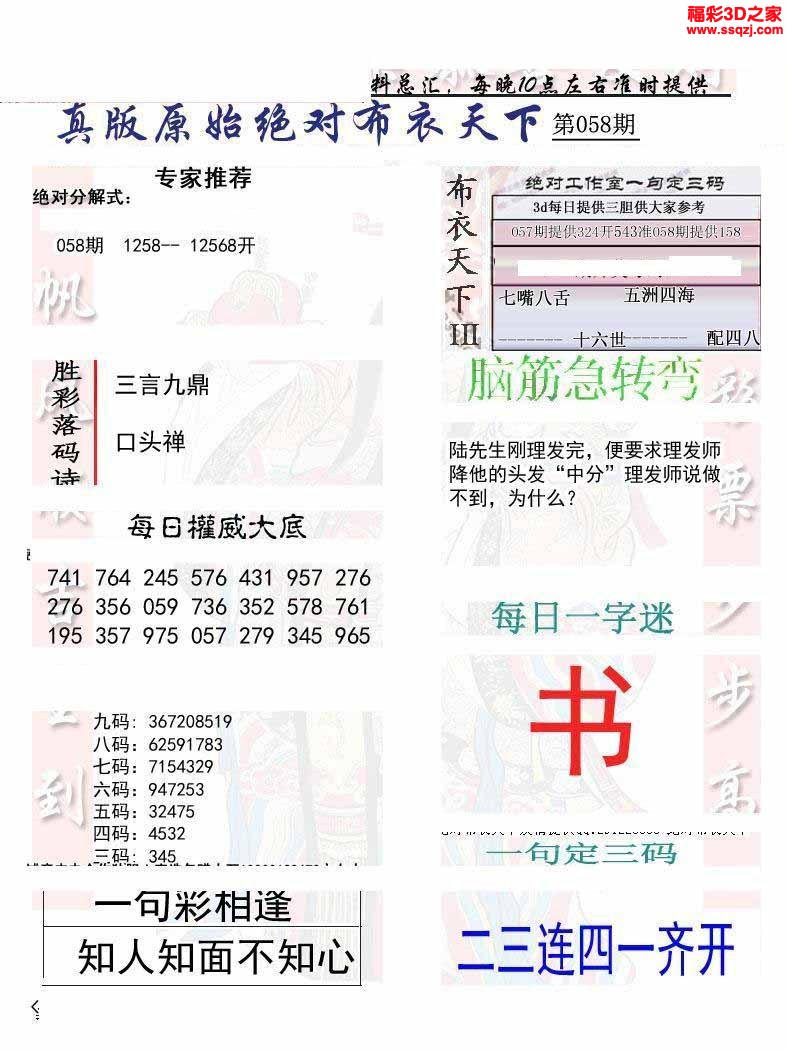 福彩3D之家
www.ssqzj.com
料总汇，每晚10点左右准时提供
真版原始绝对布衣天下 第058期
专家推荐
绝对分解式：
058期 1258-- 12568开
帆
胜彩落码诗
三言九鼎
口头禅
每日攉威大底
741 764 245 576 431 957 276
276 356 059 736 352 578 761
195 357 975 057 279 345 965
九码: 367208519
八码: 62591783
七码: 7154329
六码: 947253
五码: 32475
四码: 4532
三码: 345
到
一句彩相逢
知人知面不知心
布衣天下III
绝对工作室一句定三码
3d每日提供三胆供大家参考
057期提供324开543准058期提供158
七嘴八舌 五洲四海
------- 十六世------- 配四八
脑筋急转弯
彩
票
陆先生刚理发完，便要求理发师
降他的头发“中分”理发师说做
不到，为什么？
每日一字迷
书
步
高
一句定三码
二三连四一齐开